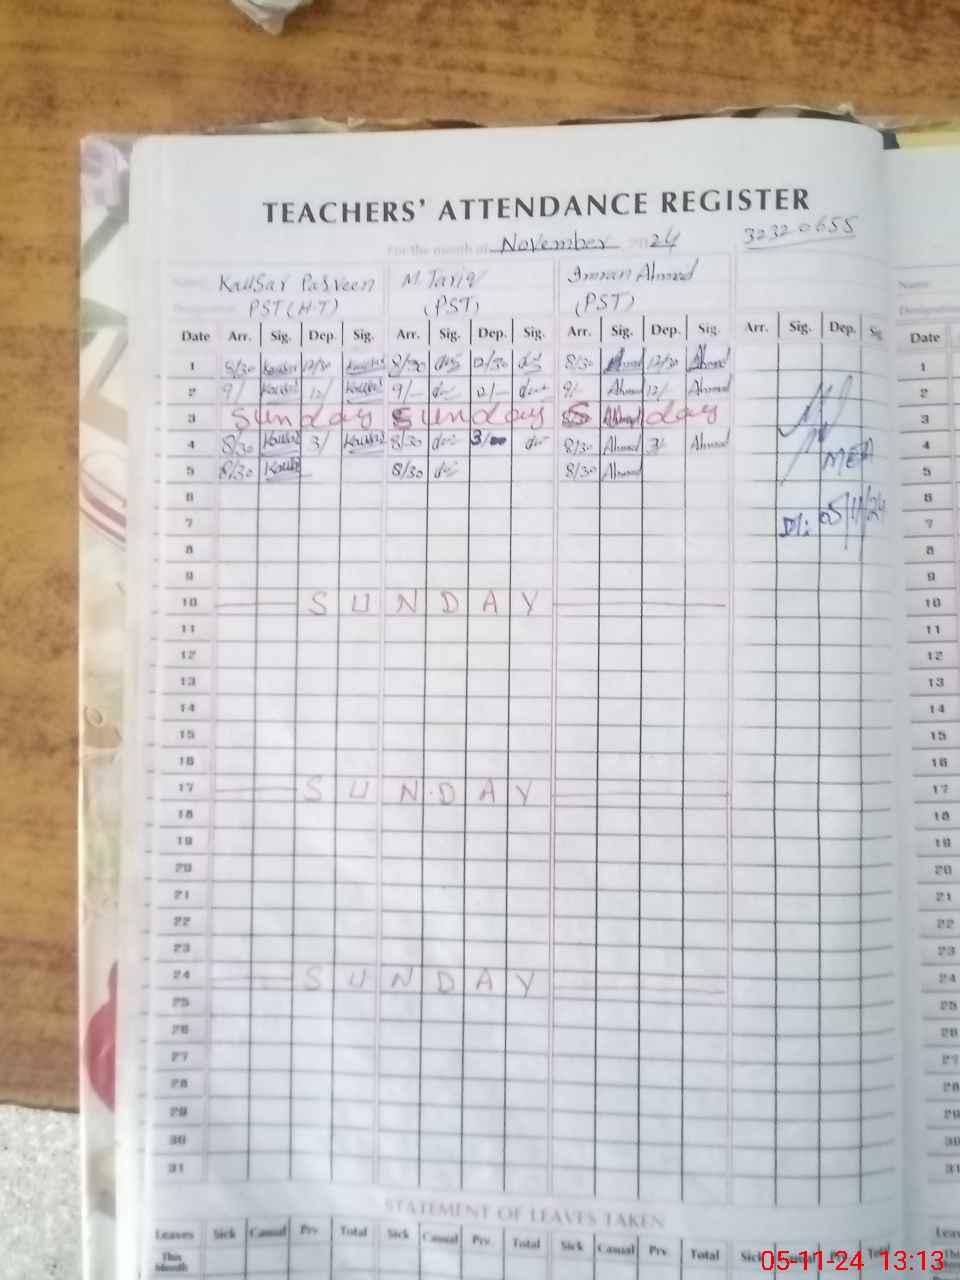 TEACHERS' ATTENDANCE REGISTER
For the month of November 2024 32320655
Name Kausar Parveen M. Tariq Imran Ahmed
Designation PST (H.T) (PST) (PST)
Date Arr. Sig. Dep. Sig. Arr. Sig. Dep. Sig. Arr. Sig. Dep. Sig. Arr. Sig. Dep. Sig
1 8/30 Kausar 12/30 Kausar 8/30 12/30 8/30 Ahmed 12/30 Ahmed
2 9/- Kausar 12/ Kausar 9/- 12/- 9/- Ahmed 12/- Ahmed
3 Sunday Sunday S day
4 8/30 Kausar 3/ Kausar 8/30 3/ 8/30 Ahmed 3/ Ahmed
5 8/30 Kausar 8/30 8/30 Ahmed
MEA
Dt: 05/11/24
6
7
8
9
10 SUNDAY
11
12
13
14
15
16
17 SUNDAY
18
19
20
21
22
23
24 SUNDAY
25
26
27
28
29
30
31
STATEMENT OF LEAVES TAKEN
Leaves Sick Casual Prv Total Sick Casual Prv. Total Sick Casual Prv. Total Sick Casual Prv. Total
This Month
Name
Designation
Date
1
2
3
4
5
6
7
8
9
10
11
12
13
14
15
16
17
18
19
20
21
22
23
24
25
26
27
28
29
30
31
05-11-24 13:13